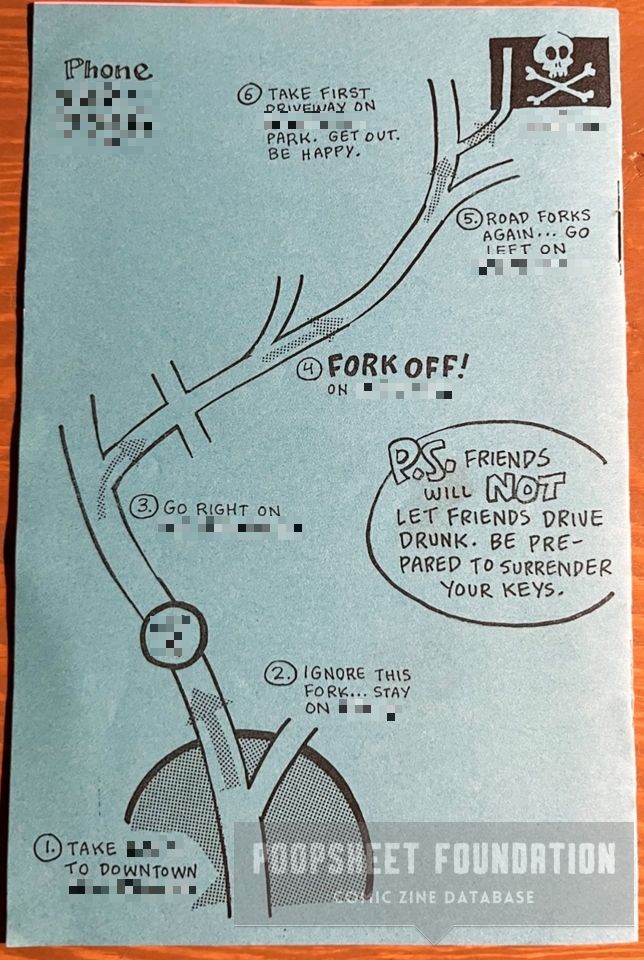 Phone
⑥ TAKE FIRST
DRIVEWAY ON
PARK. GET OUT.
BE HAPPY.
⑤ ROAD FORKS
AGAIN... GO
LEFT ON
④ FORK OFF!
ON
P.S. FRIENDS
WILL NOT
LET FRIENDS DRIVE
DRUNK. BE PRE-
PARED TO SURRENDER
YOUR KEYS.
③ GO RIGHT ON
② IGNORE THIS
FORK... STAY
ON
① TAKE
TO DOWNTOWN
POOPSHEET FOUNDATION
COMIC ZINE DATABASE